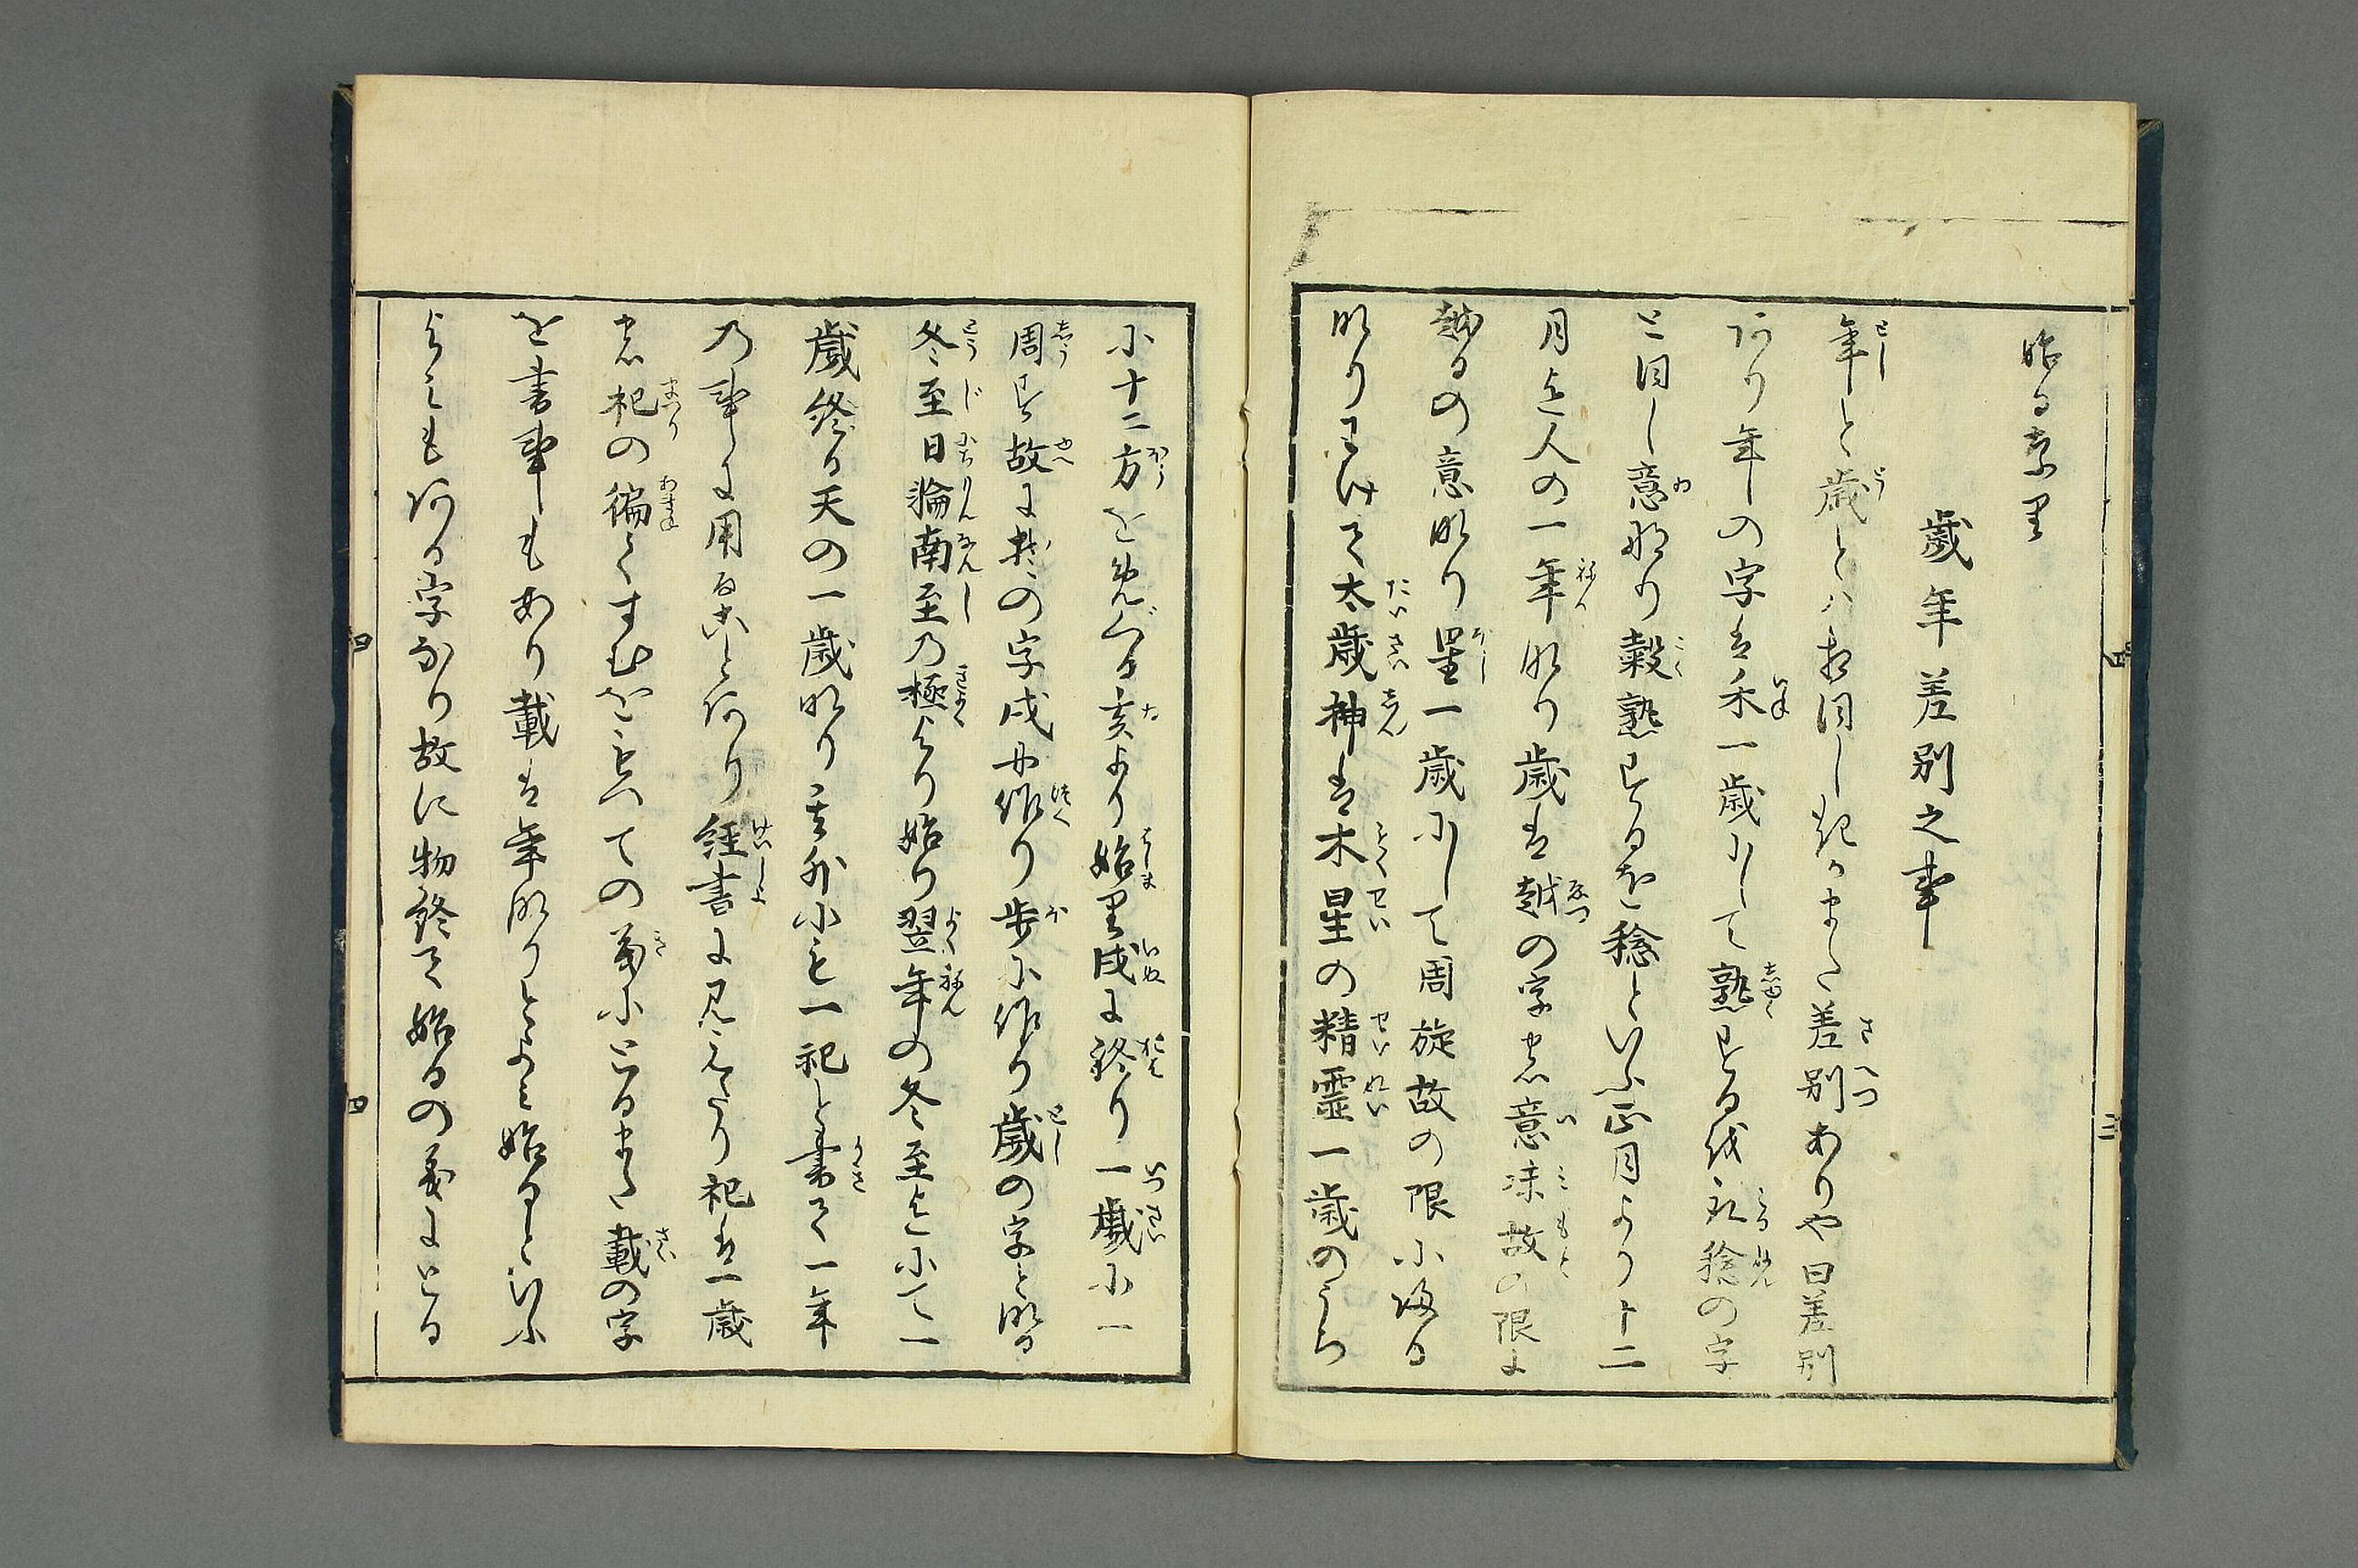 始る素里
歳年差別之事
年と歳とハ相同しきかまた差別ありや曰差別
阿り年の字は禾一歳にして熟する故に稔の字
と同し意那り穀熟するを稔といふ正月より十二
月迄人の一年那り歳は越の字の意味故の限に
越るの意那り星一歳にして周旋故の限に満る
那りわけて太歳神は木星の精霊一歳のうち
に十二方をめぐる亥より始里戌に終り一歳に一
周す故に歳の字戌に作り歩に作り歳の字と那る
冬至日輪南至の極より始り翌年の冬至迄にて一
歳終る天の一歳那り其外にも一祀と書て一年
の事に用ること阿り経書に見えたり祀は一歳
の祀の徧くすむをもつての義にとるまた載の字
を書事もあり載は年那りとよみ始るといふ
よみも阿る字なり故に物終て始るの義にとる
四
三